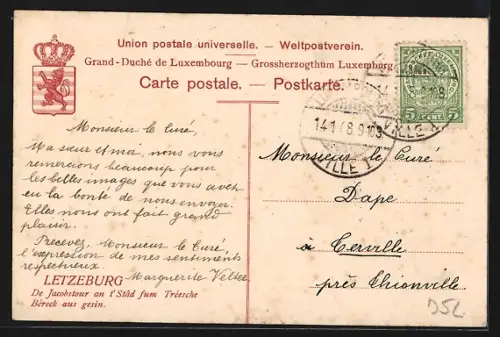 Union postale universelle. — Weltpostverein.
Grand-Duché de Luxembourg — Grossherzogthum Luxemburg
Carte postale. — Postkarte.
5 CENT. 5
VILLE
Monsieur le Curé,
Ma sœur et moi, nous vous
remercions beaucoup pour
les belles images que vous avez
eu la bonté de nous envoyer.
Elles nous ont fait grand
plaisir.
Recevez, Monsieur le Curé,
l'expression de mes sentiments
respectueux
Marguerite
Monsieur le Curé
Dape
à Cerville
près Thionville
LETZEBURG
De Jacobstour an t'Stâd fum Trëesche
Bérech aus gesin.
DSL